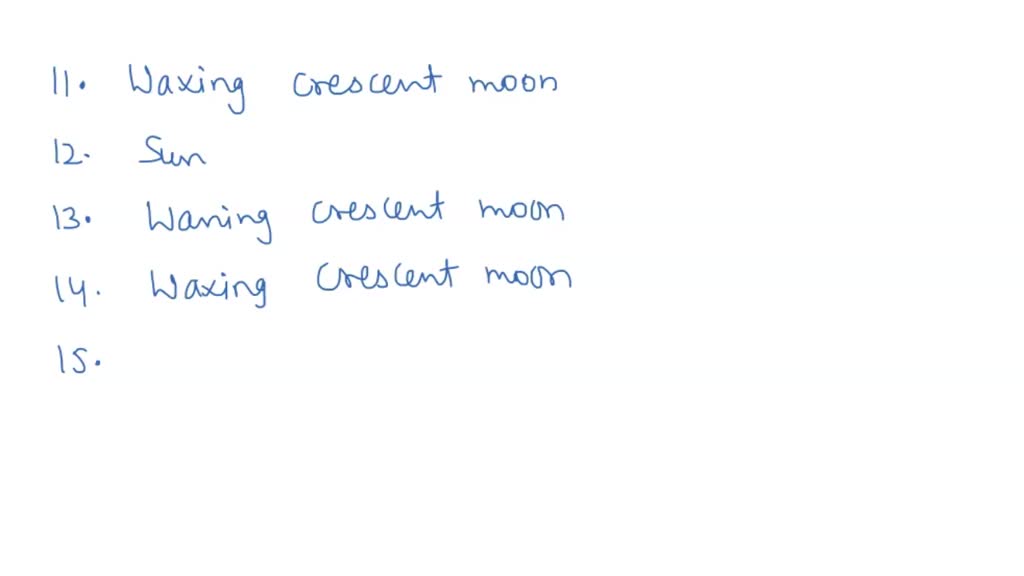 11. Waxing crescent moon
12. Sun
13. Waning crescent moon
14. Waxing crescent moon
15.